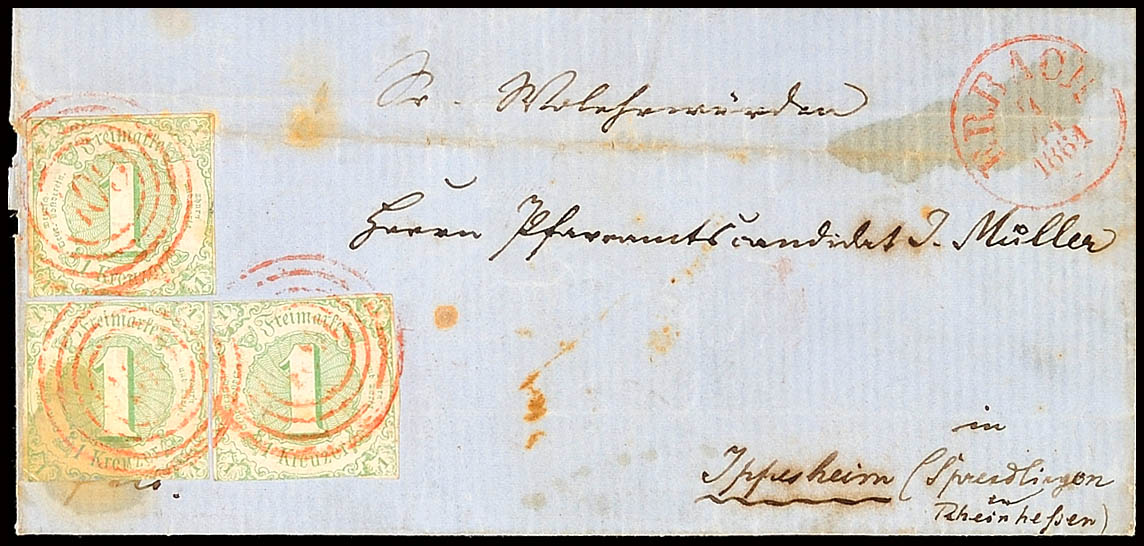 Sr. Wolehrwürden
ERBACH
1861
Herrn Pfarramtscandidat J. Müller
in
Ippesheim (Sprendlingen
in
Rheinheßen)
Freimarke
1
1 Kreuzer
Freimarke
1
1 Kreuzer
Freimarke
1
1 Kreuzer